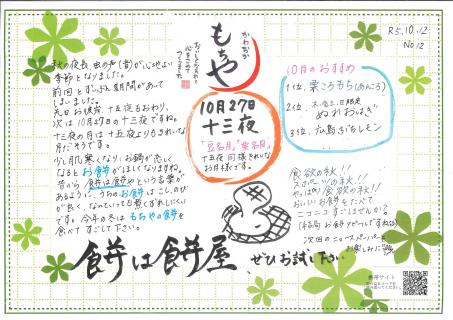 秋の夜長、虫の声(音)が心地よい
季節となりました。
前回とずいぶん期間があいて
しまいました。
先日お彼岸、十五夜もおわり、
次は10月27日の十三夜ですね。
十三夜の月は十五夜よりもきれいな
月だそうです。
少し肌寒くなり、お餅が恋しく
なるとお餅がほしくなりますね。
昔から餅は餅やという言葉が
あるように、うちのお餅はこし、のび
が良く、なんといっても煮くずれしにくい
です。今年の冬はもちやの餅を
食べてすごして下さい。
かわなか
もちや
おいしいものを
心をこめて
つくります
10月27日
十三夜
「豆名月」「栗名月」
十五夜同様きれいな
お月様です。
R5.10.12
No.12
10月のおすすめ
1位、栗ころもち(あんころ)
2位、木・金・土日限定
ぬれおはぎ
3位、広島さちレモン
食欲の秋!!
スポーツの秋!!
やっぱり食欲の秋!!
おいしいお餅をたべて
ニコニコすごしませんか?
(結局お餅アピールですねぇ)
次回のニュースペーパーも
お楽しみに
餅は餅屋、ぜひお試し下さい
携帯サイト